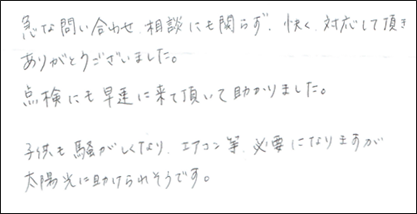 急な問い合わせ、相談にも関らず、快く、対応して頂き
ありがとうございました。
点検にも早速に来て頂いて助かりました。
子供も騒がしくなり、エアコン等、必要になりますが
太陽光に助けられそうです。